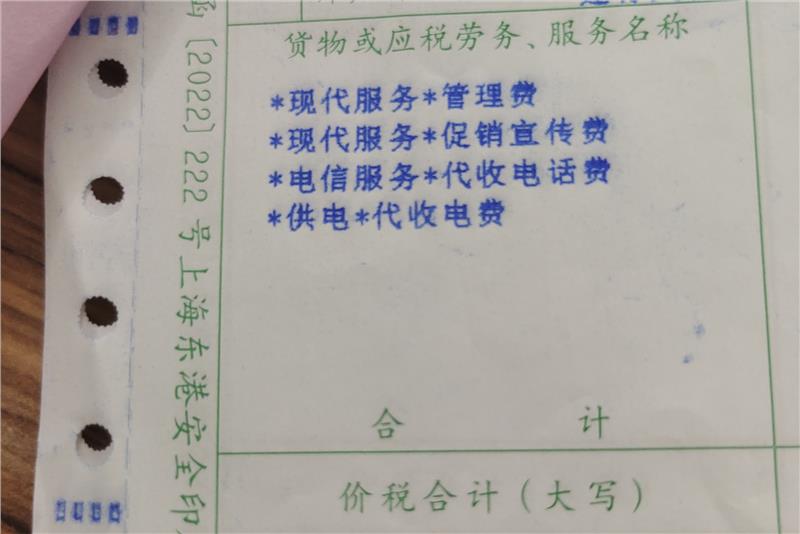 货物或应税劳务、服务名称
*现代服务*管理费
*现代服务*促销宣传费
*电信服务*代收电话费
*供电*代收电费
合 计
价税合计(大写)
函〔2022〕222号上海东港安全印